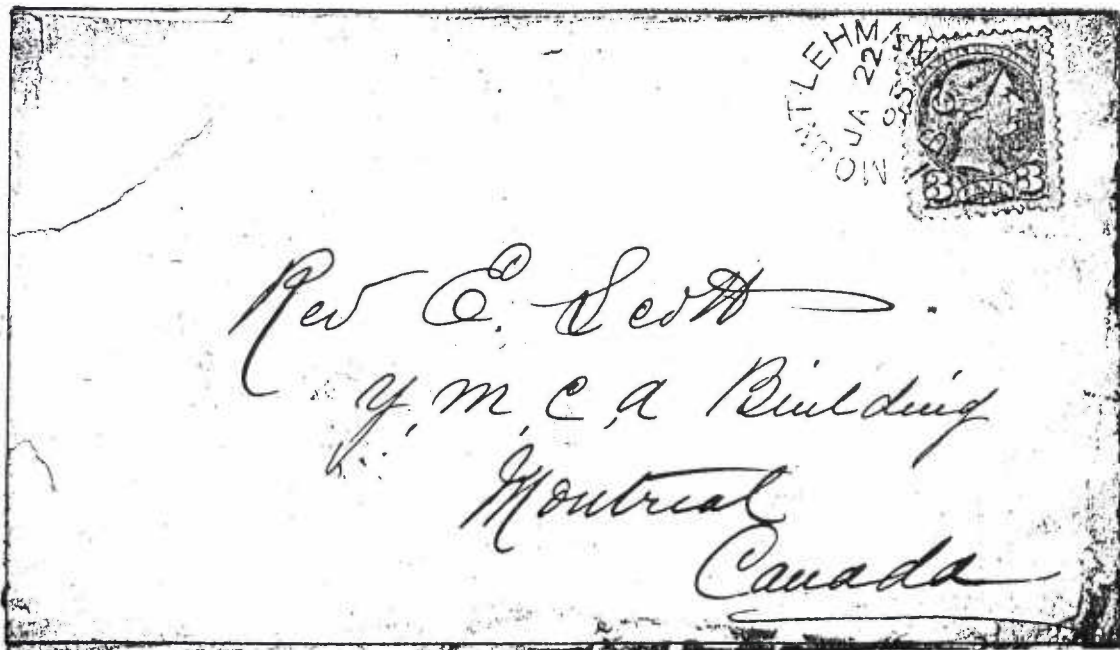 MOUNT LEHMAN
JA 22
95
3 3
Rev E. Scott
Y, M, C, A Building
Montreal
Canada